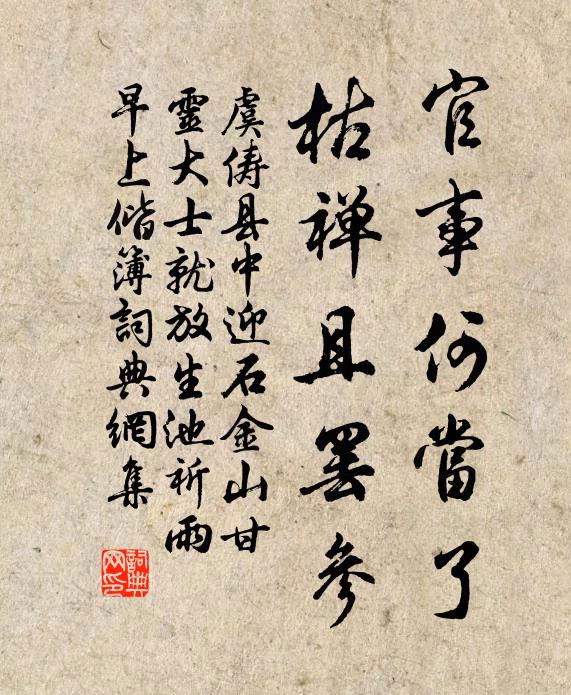 官事何當了
枯禅且罢參
虞俦县中迎石金山甘
靈大士就放生池祈雨
早上偕簿詞典網集
詞典网印